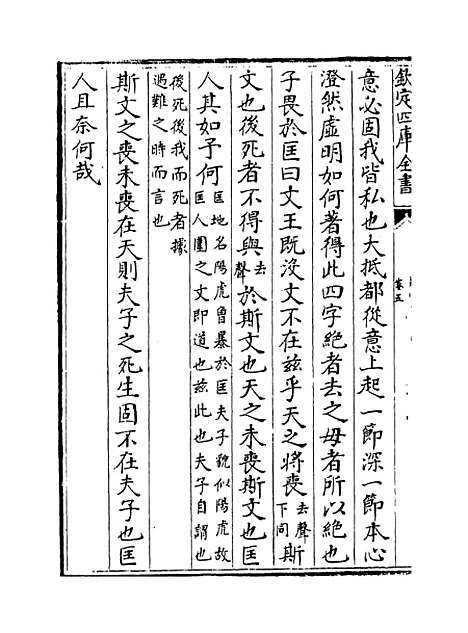 欽定四庫全書
卷五
意必固我皆私也大抵都從意上起一節深一節本心
澄然虛明如何著得此四字絶者去之毋者所以絶也
子畏於匡曰文王既没文不在兹乎天之將喪去聲下同斯
文也後死者不得與去聲於斯文也天之未喪斯文也匡
人其如予何匡地名陽虎魯暴於匡夫子貌似陽虎故匡人圍之文即道也兹此也夫子自謂也
後死後我而死者據遇難之時而言也
斯文之喪未喪在天則夫子之死生固不在夫子也匡
人且奈何哉